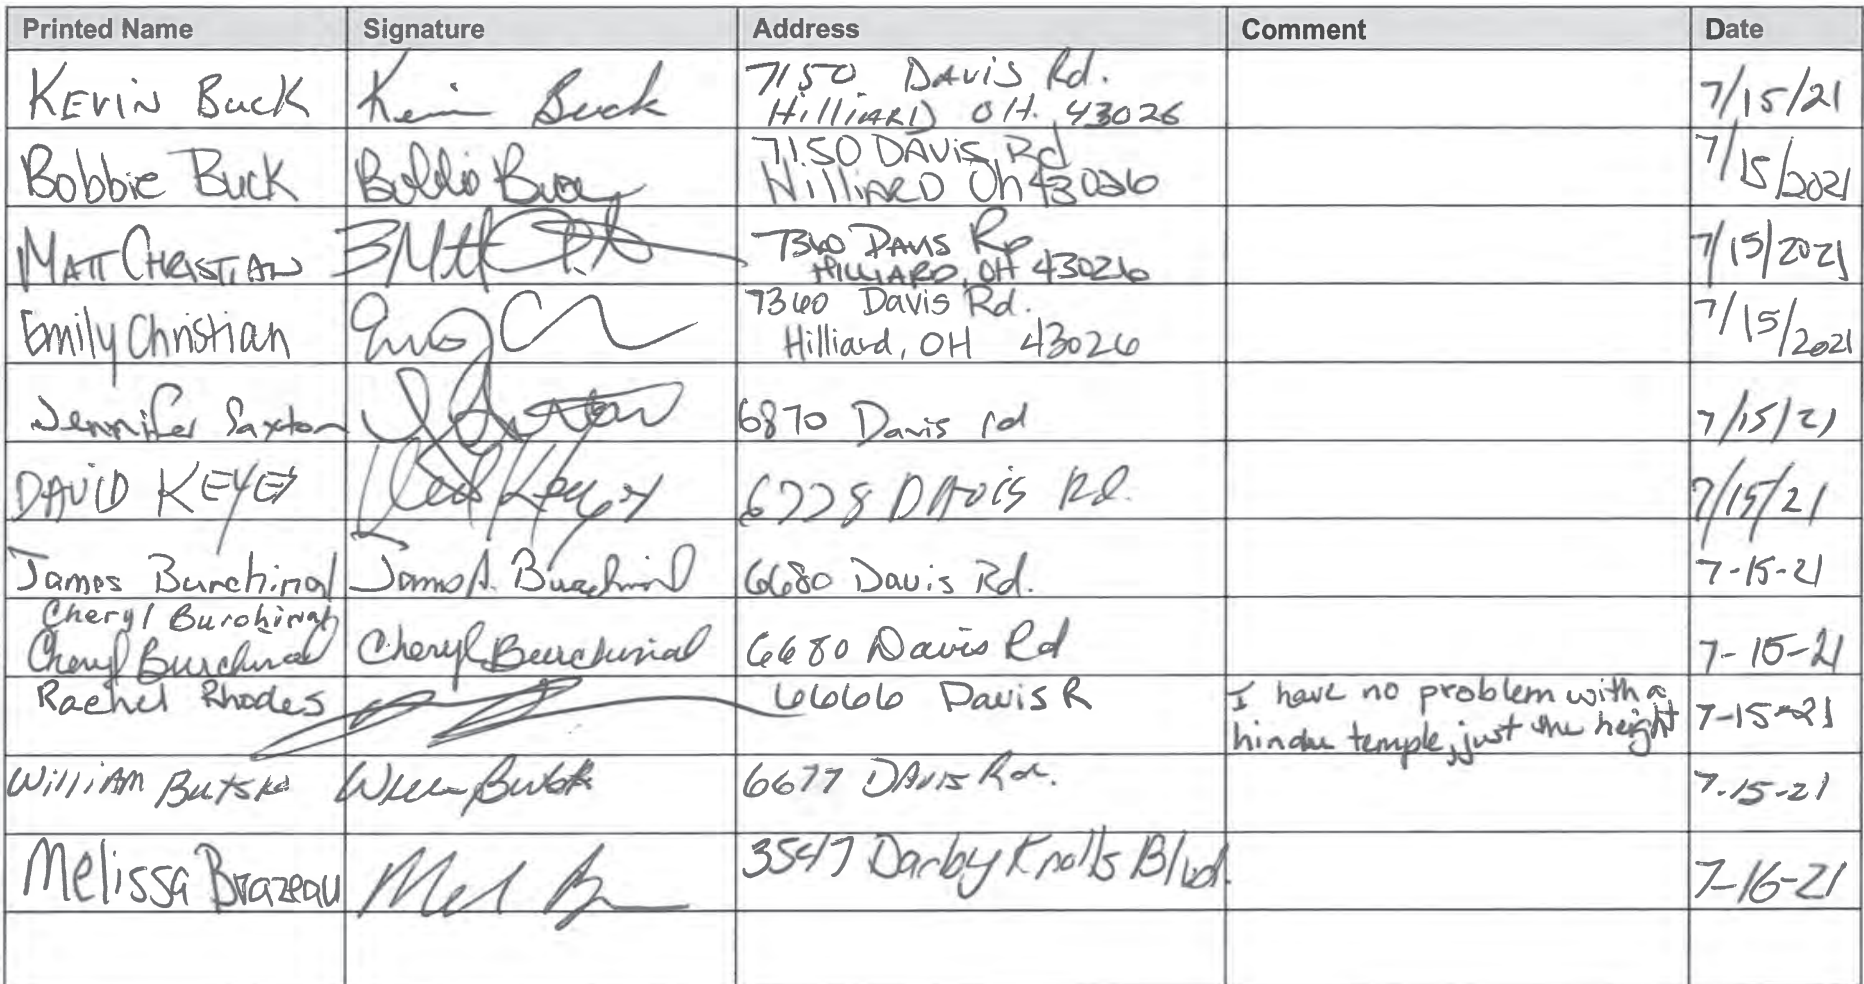 Printed Name Signature Address Comment Date
KEVIN BUCK Kevin Buck 7150 DAVIS Rd. 7/15/21
HILLIARD OH. 43026
Bobbie Buck Bobbie Buck 7150 DAVIS Rd 7/15/2021
HilliARD Oh 43026
MATT CHRISTIAN 7360 DAVIS RD 7/15/2021
HILLIARD, OH 43026
Emily Christian 7360 Davis Rd. 7/15/2021
Hilliard, OH 43026
Jennifer Saxton 6870 Davis rd 7/15/21
DAVID KEYES 6728 DAVIS Rd. 7/15/21
James Burchinal James A. Burchinal 6680 Davis Rd. 7-15-21
Cheryl Burchinal
Cheryl Burchinal Cheryl Burchinal 6680 Davis Rd 7-15-21
Rachel Rhodes 6666 Davis R I have no problem with a 7-15-21
hindu temple, just the height
WilliAM Butsko 6677 DAVIS Rd. 7-15-21
Melissa Brazeau Mel B 3547 Darby Knolls Blvd. 7-16-21